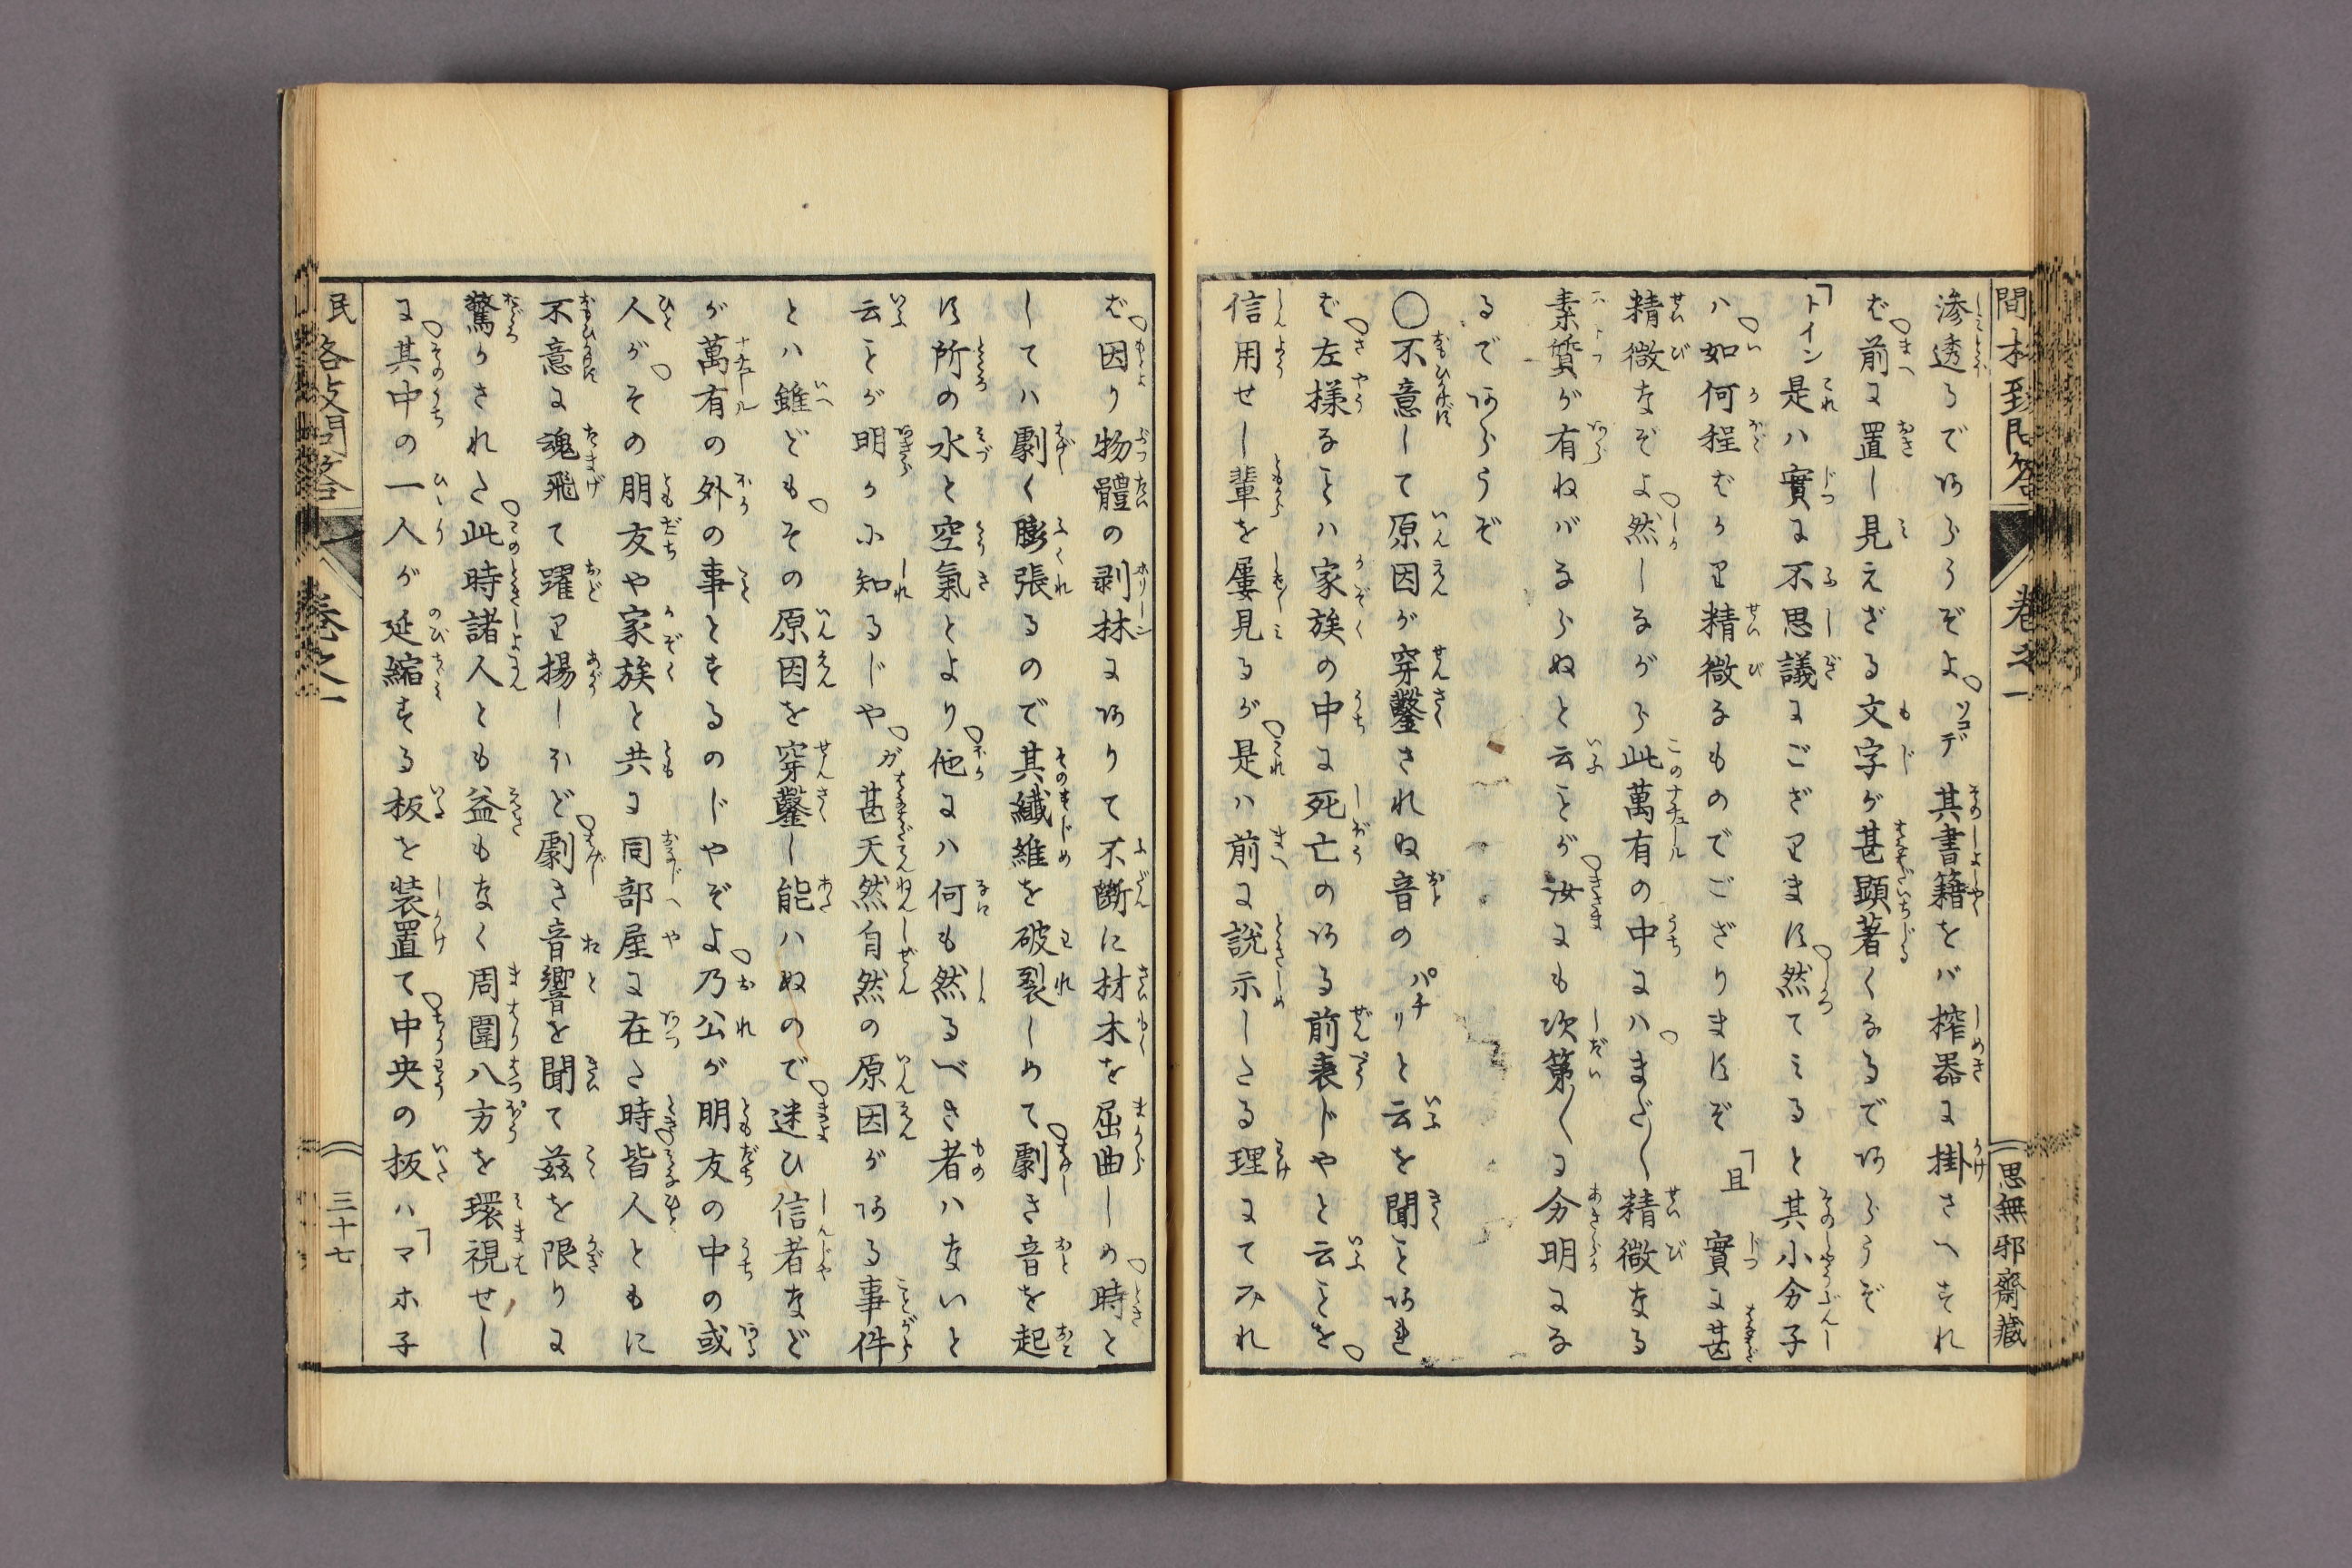 滲透るであらうぞよソコデ其書籍をバ搾器に掛さへすれ
ば前に置し見えざる文字が甚顕著くなるであらうぞ
「トイン是ハ實に不思議にござりまに然てみると其小分子
ハ如何程むかり精微なるものでござりまにぞ「且實に甚
精微なぞよ然しながら此萬有の中にハまだ〱精微なる
素質が有ねバならぬと云ことが汝にも次第〱に分明にな
るであらうぞ
〇不意して原因が穿鑿されぬ音のパチリと云を聞ことあれ
ば左様なことハ家族の中に死亡のある前表じやと云ことを
信用せし輩を屢見るが是ハ前に説示したる理にてみれ
ば因り物體の剥抹にありて不斷に材木を屈曲しめ時と
してハ劇く膨張るので其纖維を破裂しめて劇き音を起
に所の水と空氣とより他にハ何も然るべき者ハないと
云ことが明かに知るじやガ甚天然自然の原因がある事件
とハ雖どもその原因を穿鑿し能ハぬので迷ひ信者など
が萬有の外の事とするのじやぞよ乃公が朋友の中の或
人がその朋友や家族と共に同部屋に在た時皆人ともに
不意に魂飛て躍り揚しほど劇き音響を聞て茲を限りに
驚かされた此時諸人とも益もなく周圍八方を環視せし
に其中の一人が延縮する板を装置て中央の板ハ「マホ子
巻之一
思無邪齋藏
民
巻之一
三十七